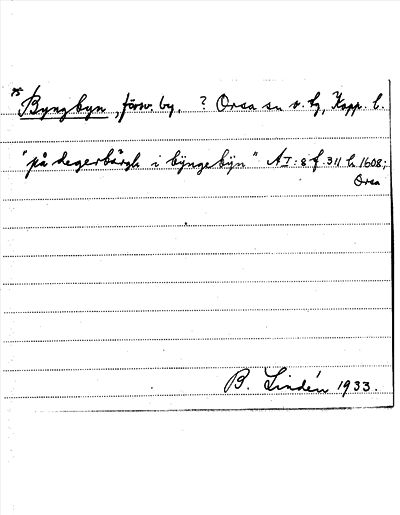 *Byngbyn, försv. by. ? Orsa sn o. tg, Kopp. l.
"på degerbärgh i bÿngebÿn" A I: 8 f. 311 h. 1608;
Orsa
B. Lindén 1933.